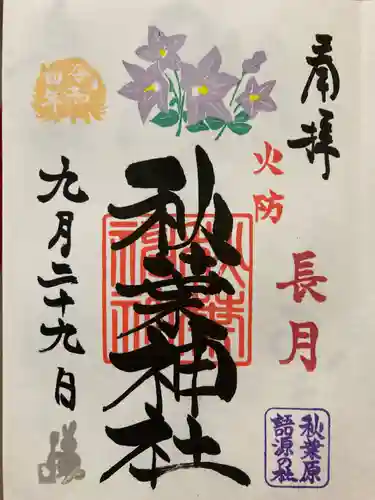 奉拝
火防
長月
秋葉原
語源の社
秋葉神社
九月二十九日